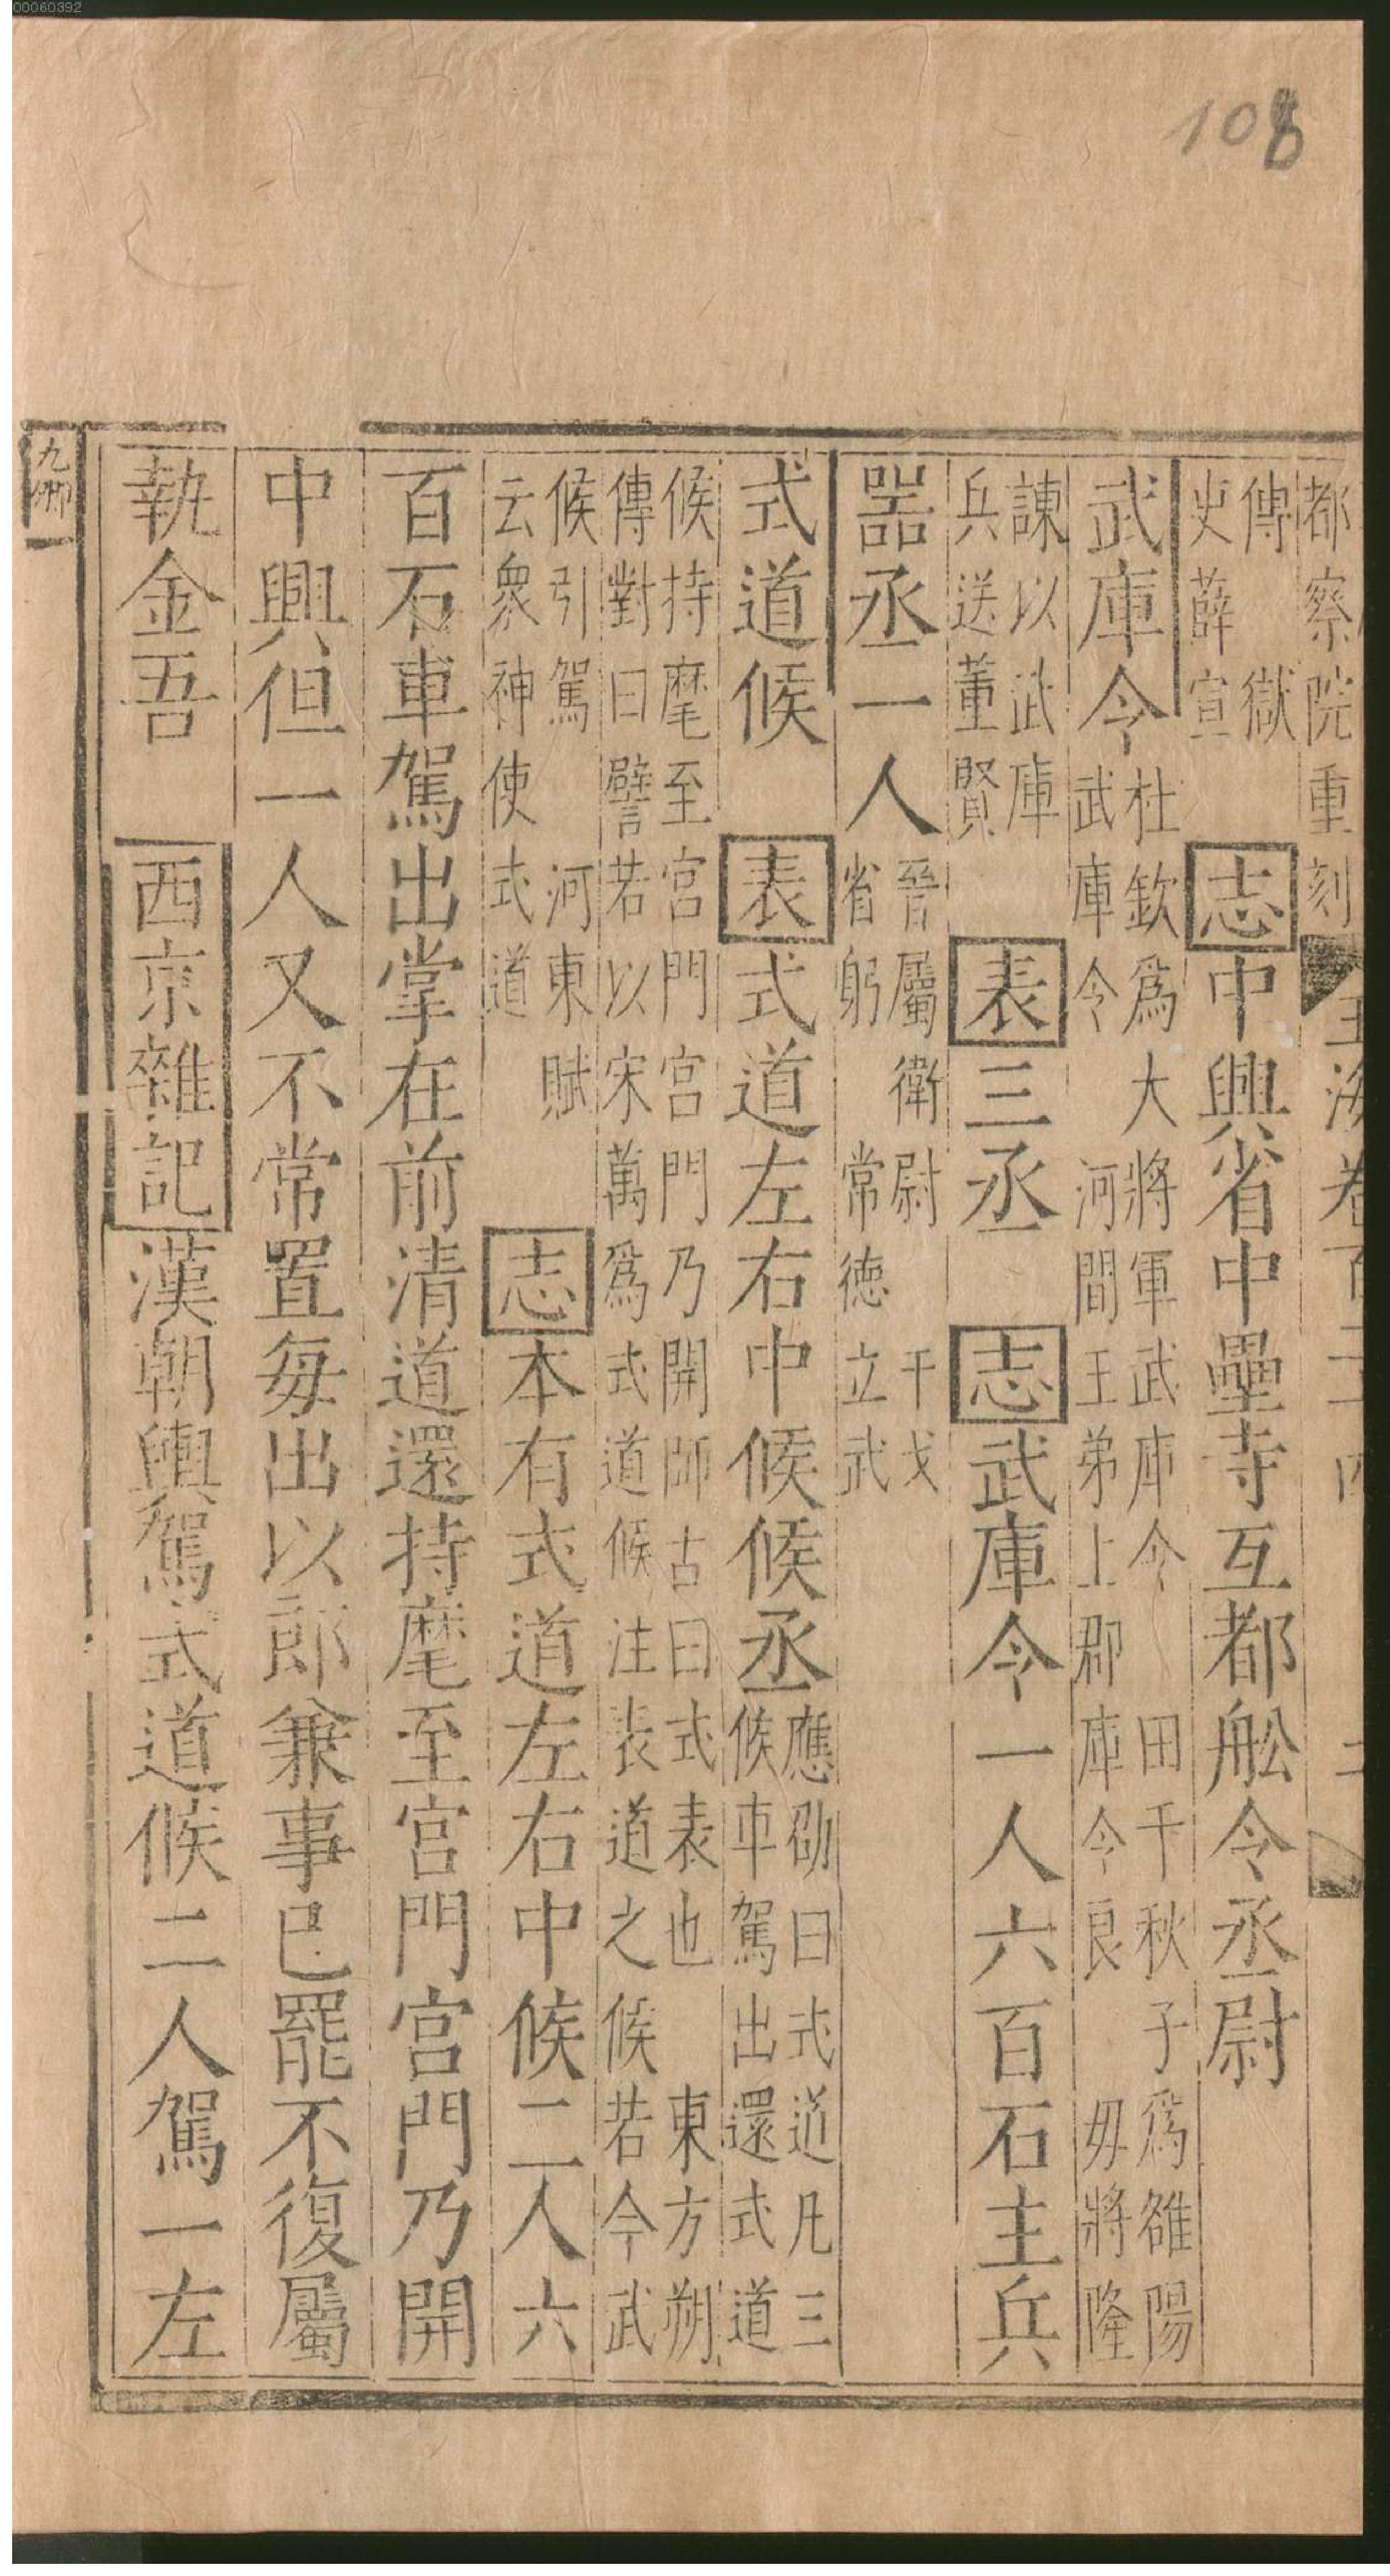 00060392
108
都察院重刻
傳獄
史薛宣
志中興省中壘寺互都舩令丞尉
武庫令
杜欽爲大將軍武庫令 田千秋子爲雒陽
武庫令 河間王弟上郡庫令良 毋將隆
諫以武庫
兵送董賢
表三丞 志武庫令一人六百石主兵
噐丞一人
晉屬衛尉 干戈
省躬 常德立武
式道候 表式道左右中候候丞
應劭曰式道凡三
候車駕出還式道
候持麾至宮門宮門乃開師古曰式表也 東方朔
傳對曰譬若以宋萬爲式道候注表道之候若今武
候引駕 河東賦
云衆神使式道
志本有式道左右中候二人六
百石車駕出掌在前清道還持麾至宮門宮門乃開
中興但一人又不常置每出以郎兼事已罷不復屬
執金吾 西京雜記漢朝輿駕式道候二人駕一左
九卿一